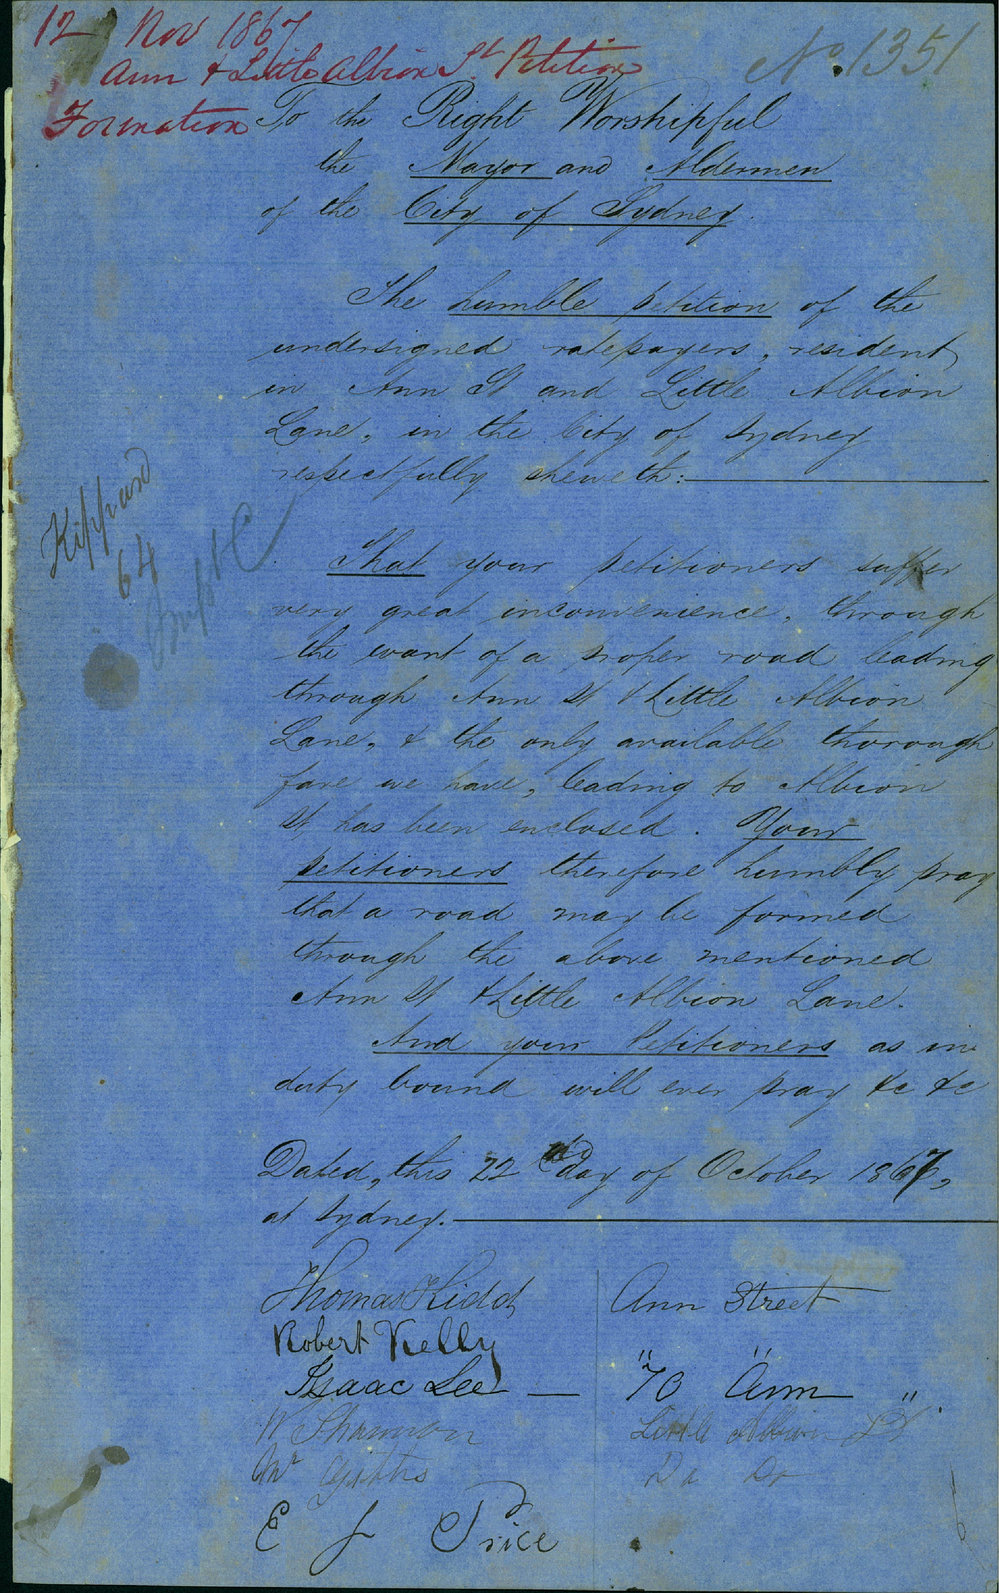 12 Nov 1867
Ann & Little Albion St Petition
Formation
No 1351
To the Right Worshipful
the Mayor and Aldermen
of the City of Sydney.
The humble petition of the
undersigned ratepayers, resident,
in Ann St and Little Albion
Lane, in the City of Sydney
respectfully sheweth:
Kippax
64
That your petitioners suffer
very great inconvenience, through
the want of a proper road leading
through Ann St & Little Albion
Lane, & the only available thorough
fare we have, leading to Albion
St has been enclosed. Your
petitioners therefore humbly pray
that a road may be formed
through the above mentioned
Ann St & Little Albion Lane.
And your Petitioners as in
duty bound will ever pray &c &c
Dated, this 22nd day of October 1867,
at Sydney.
Thomas Kidd, Ann Street
Robert Kelly " "
Isaac Lee — 70 Ann "
W Shannon Little Albion St
Mr Gibbs Do Do
E J Price